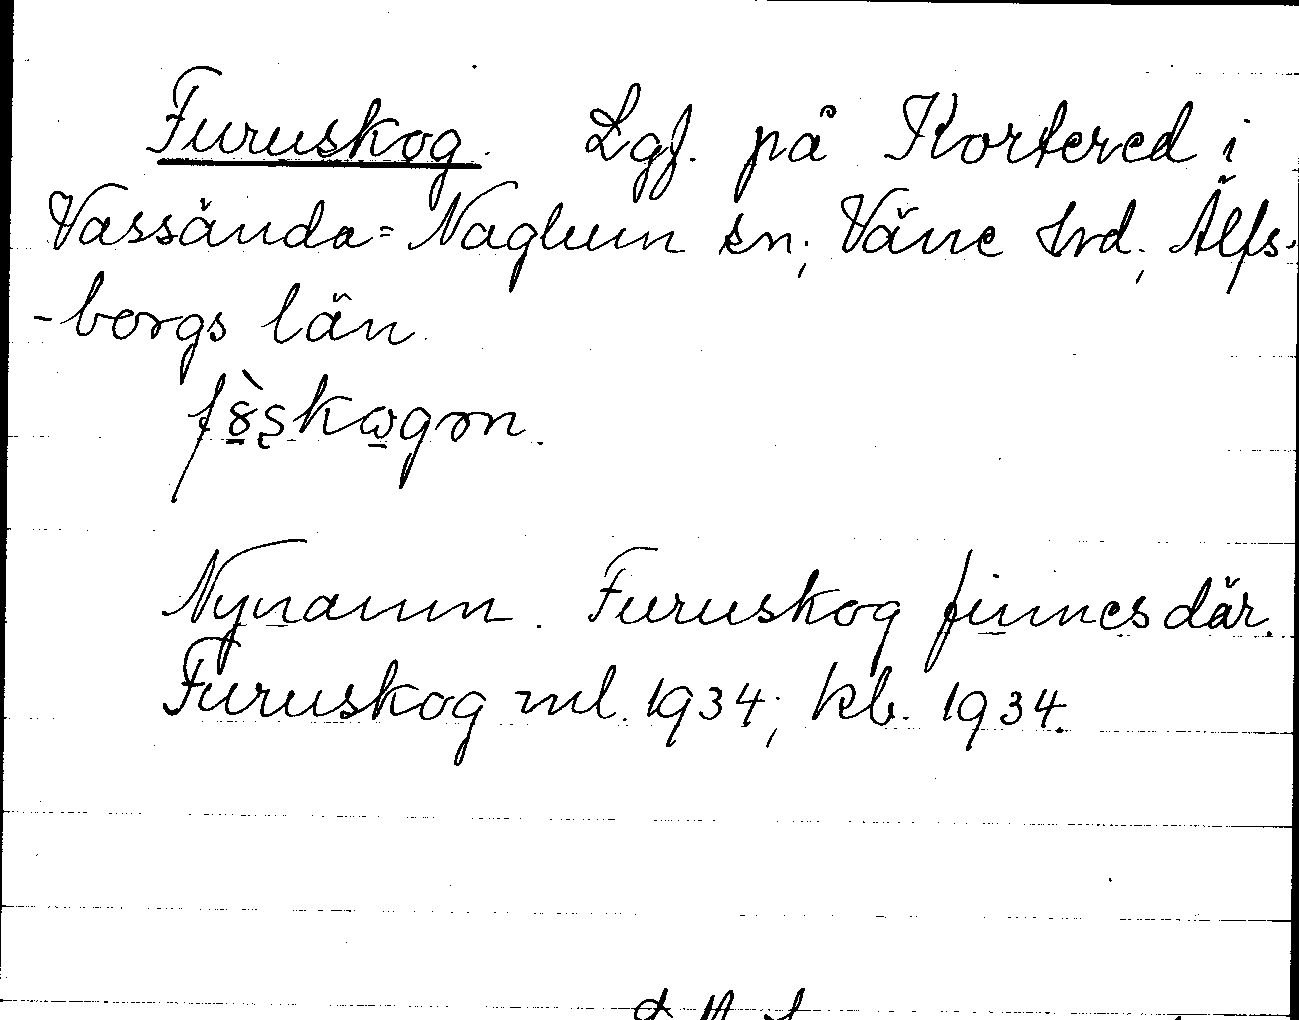 Furuskog. Lgf. på Kortered i
Vassända=Naglum sn; Väne hrd; Älfs-
-borgs län.
Nynamn. Furuskog finnes där.
Furuskog ml. 1934; kb. 1934.